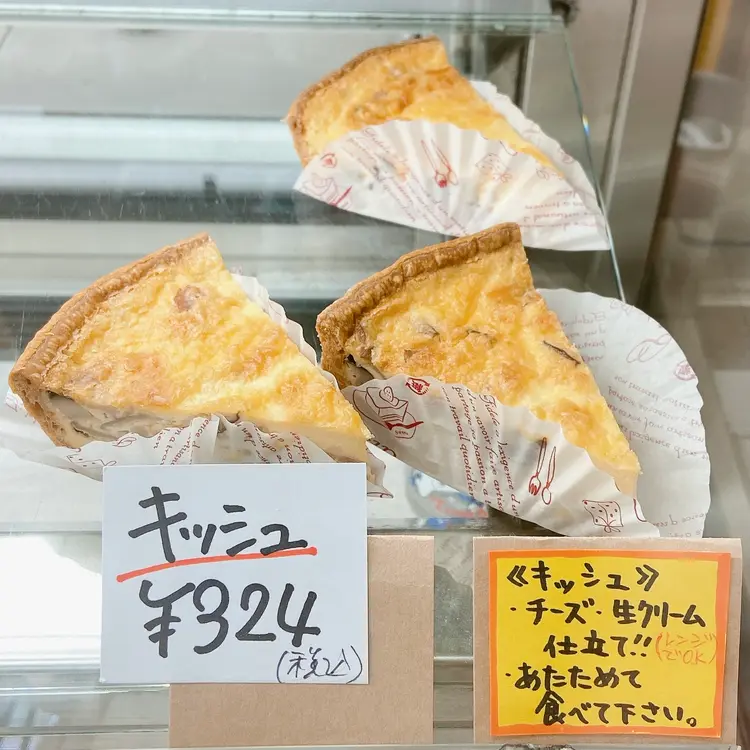 キッシュ
¥324
(税込)
≪キッシュ≫
・チーズ・生クリーム
仕立て!! (レンジでOK)
・あたためて
食べて下さい。